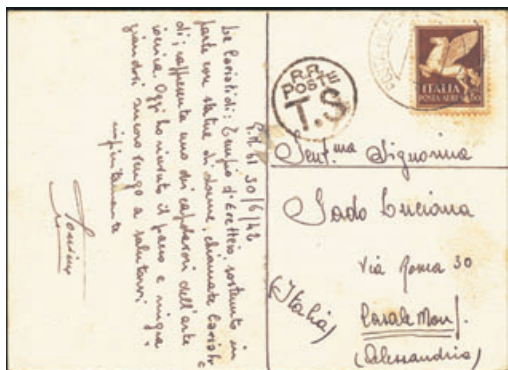 P.M. 61 30/6/42
Le Cariatidi: Tempio d'Eretteio, sostenuto in
parte con statue di donne, chiamate Cariati
di; rappresenta uno dei capolavori dell'arte
ionica. Oggi ho ricevuto il pacco e
nuovo vengo a salutarvi
infinitamente
POSTE
T.S
ITALIA
POSTA AEREA
Gent.ma Signorina
Sado Luciana
Via Roma 30
Casale Monf.
(Alessandria)
(Italia)